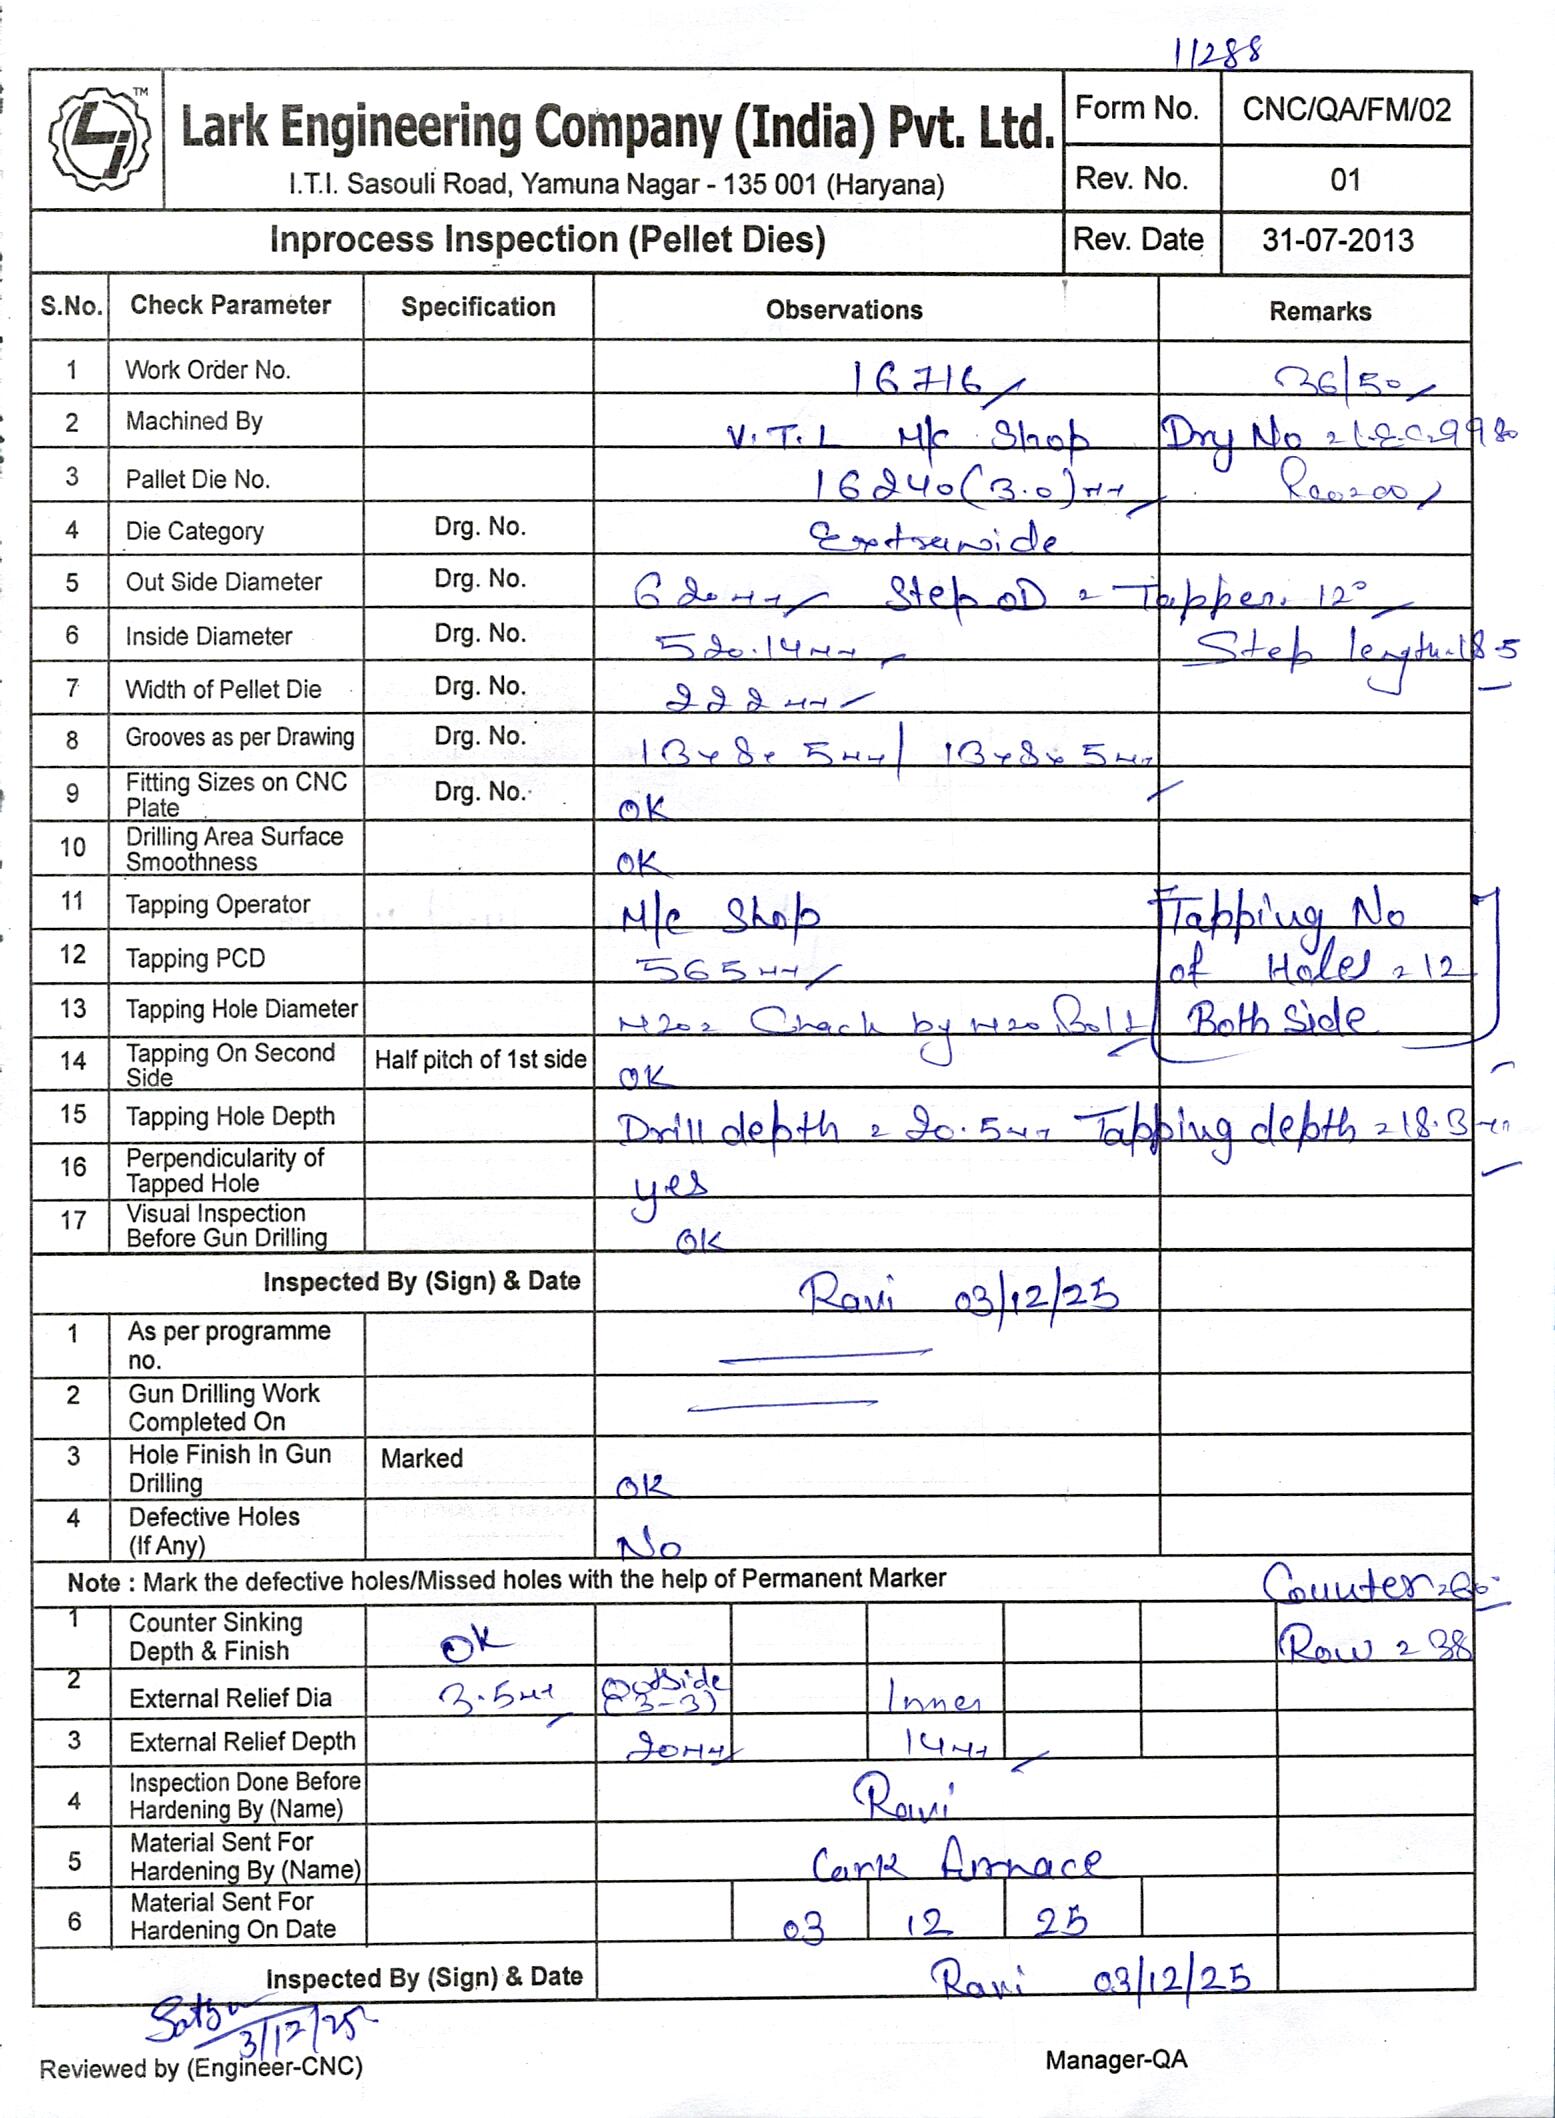 11288
TM
Lark Engineering Company (India) Pvt. Ltd.
I.T.I. Sasouli Road, Yamuna Nagar - 135 001 (Haryana)
Form No. CNC/QA/FM/02
Rev. No. 01
Inprocess Inspection (Pellet Dies) Rev. Date 31-07-2013
S.No. Check Parameter Specification Observations Remarks
1 Work Order No. 16716 36/50
2 Machined By V.T.L M/c Shop Drg No = L.E.C-9980
3 Pallet Die No. 16240 (3.0)mm
4 Die Category Drg. No. Extrawide
5 Out Side Diameter Drg. No. 620mm Step OD = Tapper. 12°
6 Inside Diameter Drg. No. 520.14mm Step length-18.5
7 Width of Pellet Die Drg. No. 222mm
8 Grooves as per Drawing Drg. No. 13x8x5mm/ 13x8x5mm
9 Fitting Sizes on CNC Plate Drg. No. OK
10 Drilling Area Surface Smoothness OK
11 Tapping Operator M/c Shop Tapping No
12 Tapping PCD 565mm of Holes = 12
13 Tapping Hole Diameter M20= Chack by M20 Bolt Both Side
14 Tapping On Second Side Half pitch of 1st side OK
15 Tapping Hole Depth Drill depth = 20.5mm Tapping depth = 18.3mm
16 Perpendicularity of Tapped Hole yes
17 Visual Inspection Before Gun Drilling OK
Inspected By (Sign) & Date Ravi 03/12/25
1 As per programme no.
2 Gun Drilling Work Completed On
3 Hole Finish In Gun Drilling Marked OK
4 Defective Holes (If Any) No
Note : Mark the defective holes/Missed holes with the help of Permanent Marker Counter=60°
1 Counter Sinking Depth & Finish OK Row = 38
2 External Relief Dia 3.5mm Outside (3-3) Inner
3 External Relief Depth 20mm 14mm
4 Inspection Done Before Hardening By (Name) Ravi
5 Material Sent For Hardening By (Name) Lark Furnace
6 Material Sent For Hardening On Date 03 12 25
Inspected By (Sign) & Date Ravi 03/12/25
3/12/25
Reviewed by (Engineer-CNC) Manager-QA